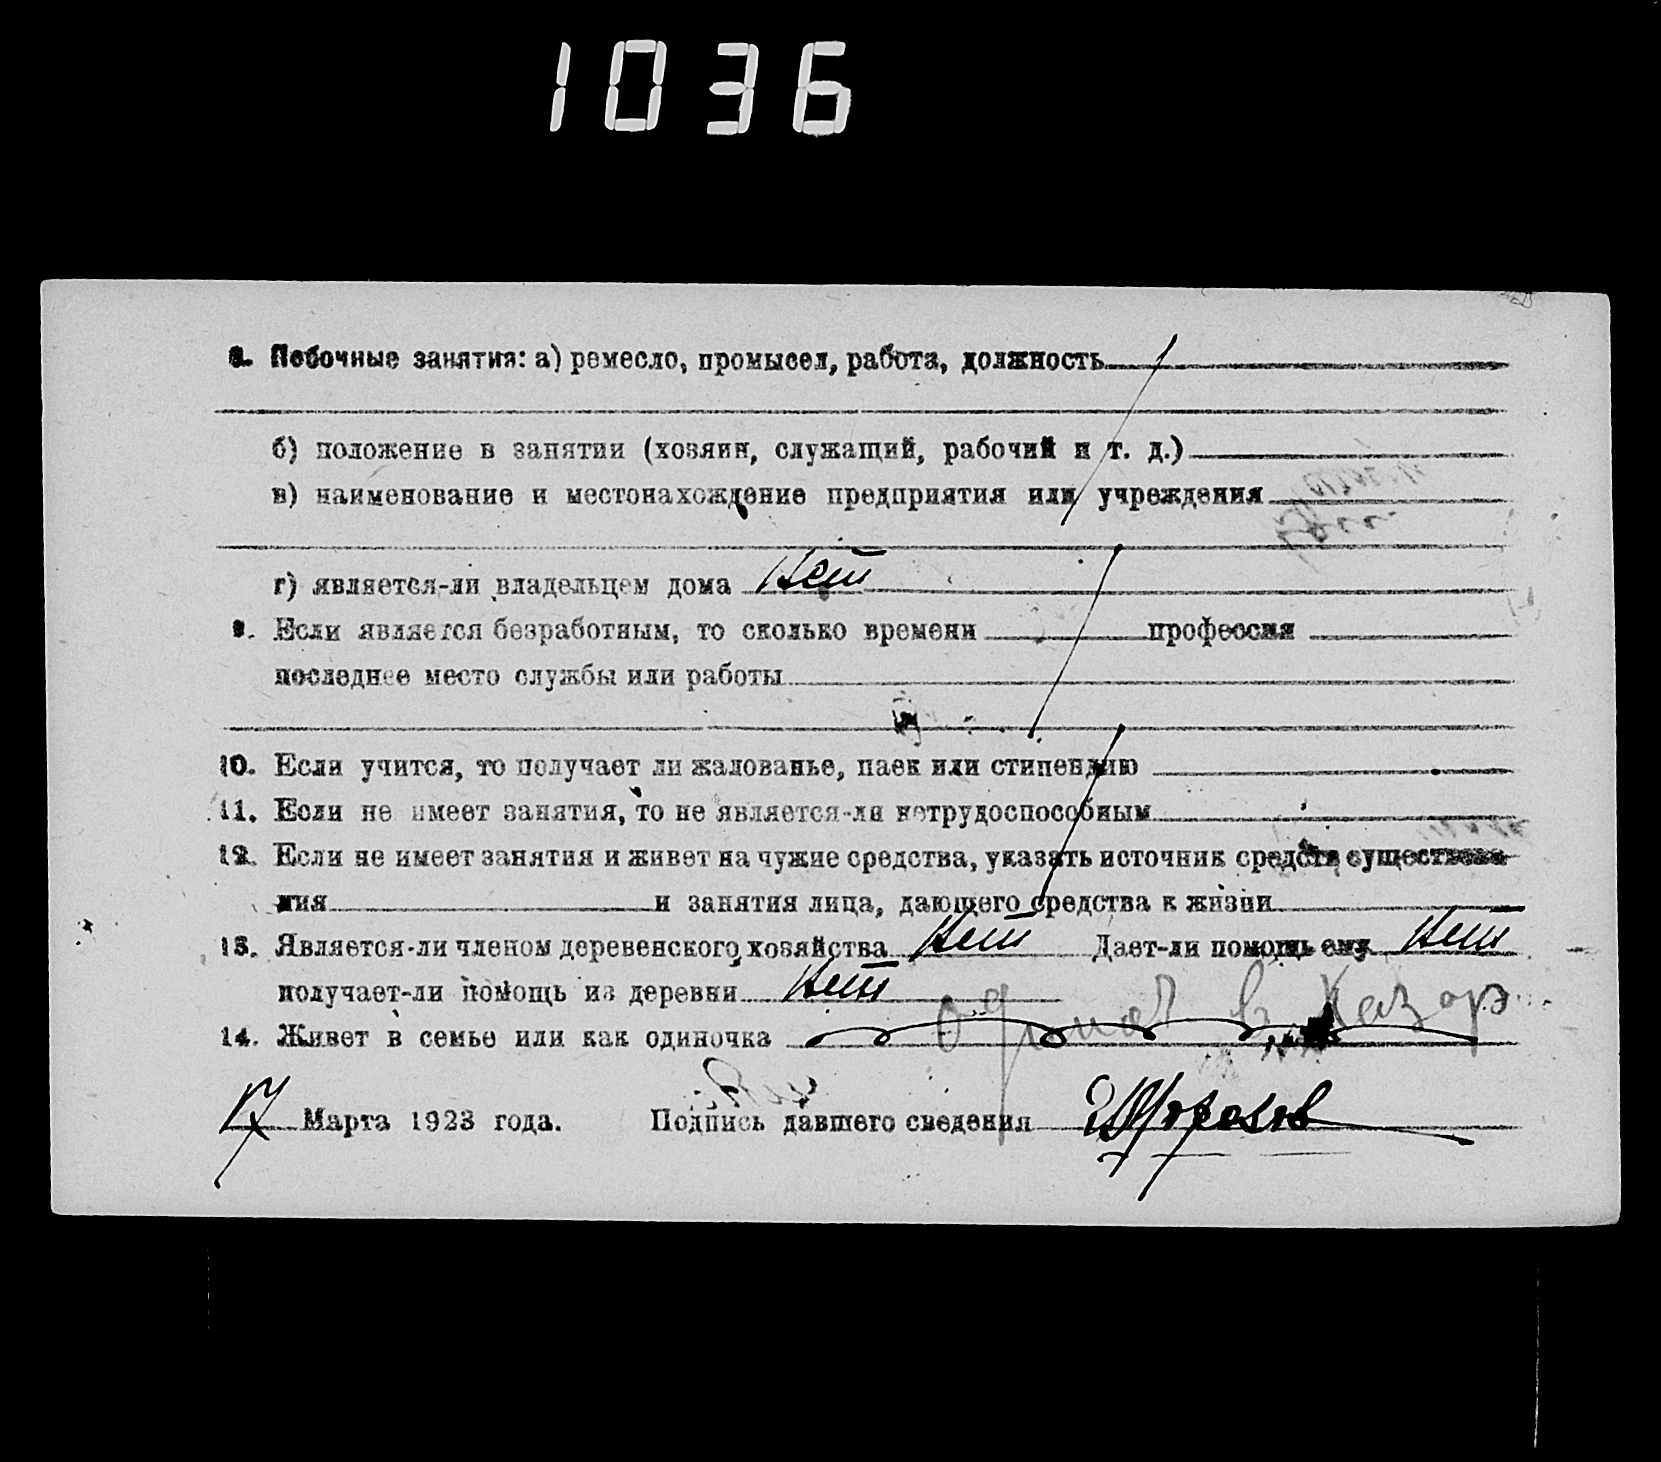 1036
8. Побочные занятия: а) ремесло, промысел, работа, должность
б) положение в занятии (хозяин, служащий, рабочий и т. д.)
в) наименование и местонахождение предприятия или учреждения
г) является-ли владельцем дома Нет
9. Если является безработным, то сколько времени профессия
последнее место службы или работы
10. Если учится, то получает ли жалованье, паек или стипендию
11. Если не имеет занятия, то не является-ли нетрудоспособным
12. Если не имеет занятия и живет на чужие средства, указать источник средств существова-
ния и занятия лица, дающего средства к жизни
13. Является-ли членом деревенского хозяйства Нет Дает-ли помощь ему Нет
получает-ли помощь из деревни Нет
14. Живет в семье или как одиночка
17 Марта 1923 года. Подпись давшего сведения